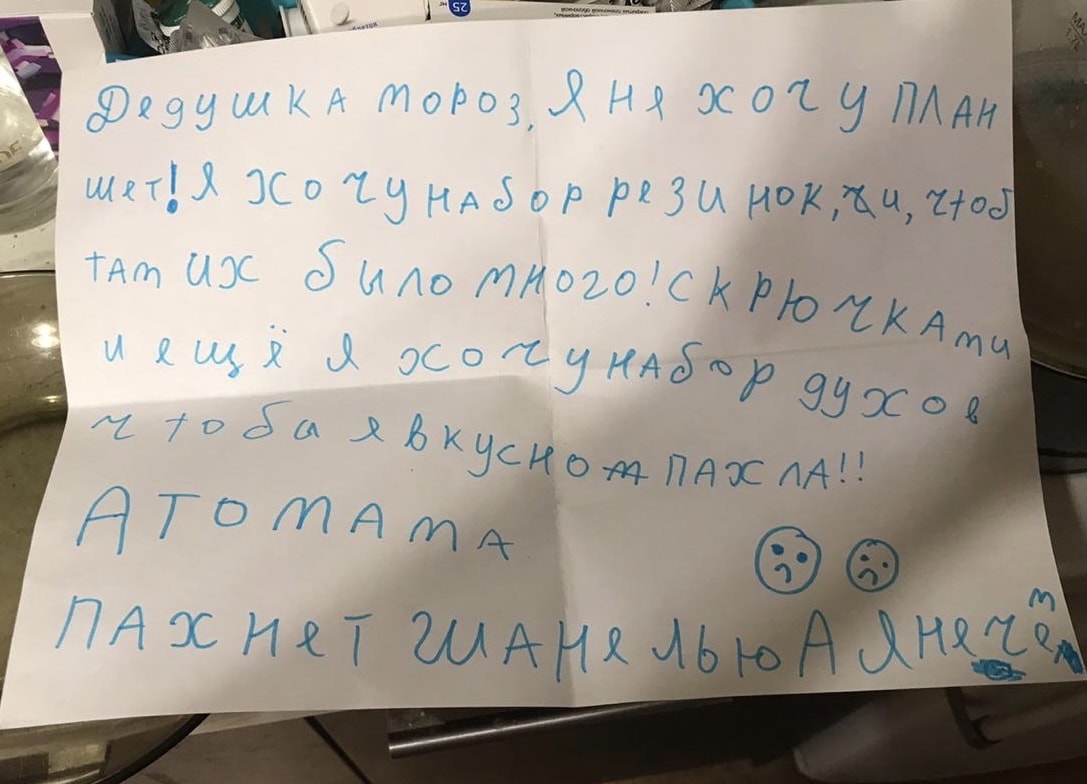 25
Дедушка мороз, я не хочу план
шет! я хочу набор резинок, чи, чтоб
там их было много! с крючками
и ещё я хочу набор духов
чтобы я вкусно пахла!!
А то мама
пахнет шанелью А я не чем